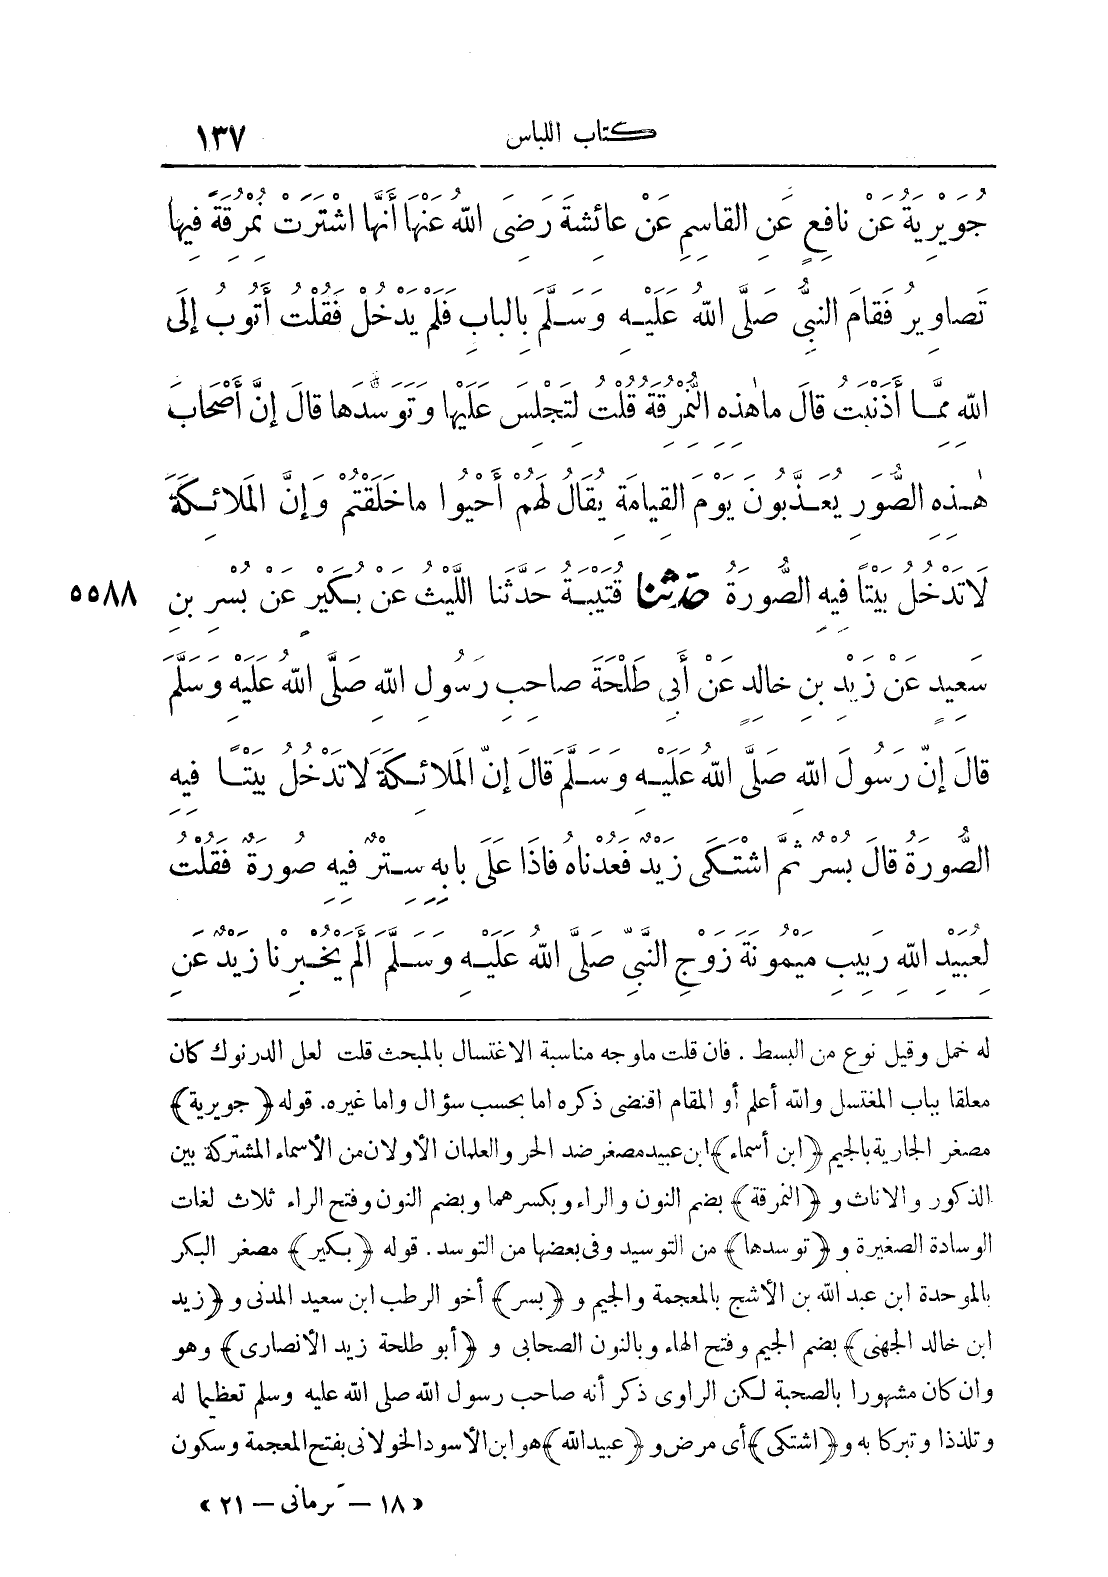 كتاب اللباس ١٣٧
جُوَيْرِيَةُ عَنْ نافِعٍ عَنِ القاسِمِ عَنْ عائِشَةَ رَضِىَ اللهُ عَنْها أَنَّها اشْتَرَتْ نُمْرُقَةً فِيها
تَصاوِيرُ فَقامَ النبىُّ صَلَّى اللهُ عَلَيْهِ وَسَلَّمَ بِالبابِ فَلَمْ يَدْخُلْ فَقُلْتُ أَتُوبُ إِلَى
اللهِ مِمَّا أَذْنَبْتُ قالَ ماهٰذِهِ النُّمْرُقَةُ قُلْتُ لِتَجْلِسَ عَلَيْها وَتَوَسَّدَها قالَ إِنَّ أَصْحَابَ
هٰذِهِ الصُّوَرِ يُعَذَّبُونَ يَوْمَ القِيامَةِ يُقَالُ لَهُمْ أَحْيُوا ماخَلَقْتُمْ وَإِنَّ المَلائِكَةَ
لَاتَدْخُلُ بَيْتًا فِيهِ الصُّورَةُ حَدَّثَنَا قُتَيْبَةُ حَدَّثَنا اللَّيْثُ عَنْ بُكَيْرٍ عَنْ بُسْرِ بْنِ ٥٥٨٨
سَعِيدٍ عَنْ زَيْدِ بْنِ خالِدٍ عَنْ أَبِى طَلْحَةَ صاحِبِ رَسُولِ اللهِ صَلَّى اللهُ عَلَيْهِ وَسَلَّمَ
قالَ إِنَّ رَسُولَ اللهِ صَلَّى اللهُ عَلَيْهِ وَسَلَّمَ قالَ إِنَّ المَلائِكَةَ لَاتَدْخُلُ بَيْتًا فِيهِ
الصُّورَةُ قالَ بُسْرٌ ثُمَّ اشْتَكَى زَيْدٌ فَعُدْناهُ فَاذَا عَلَى بابِهِ سِتْرٌ فِيهِ صُورَةٌ فَقُلْتُ
لِعُبَيْدِ اللهِ رَبِيبِ مَيْمُونَةَ زَوْجِ النَّبِىِّ صَلَّى اللهُ عَلَيْهِ وَسَلَّمَ أَلَمْ يُخْبِرْنا زَيْدٌ عَنِ
له خمل وقيل نوع من البسط . فان قلت ماوجه مناسبة الاغتسال بالمبحث قلت لعل الدرنوك كان
معلقا بباب المغتسل والله أعلم أو المقام اقتضى ذكره اما بحسب سؤال واما غيره. قوله ﴿جويرية﴾
مصغر الجارية بالجيم ﴿ابن أسماء﴾ ابن عبيد مصغر ضد الحر والعلمان الأولان من الأسماء المشتركة بين
الذكور والاناث و ﴿النمرقة﴾ بضم النون والراء وبكسرهما وبضم النون وفتح الراء ثلاث لغات
الوسادة الصغيرة و ﴿توسدها﴾ من التوسيد وفى بعضها من التوسد. قوله ﴿بكير﴾ مصغر البكر
بالموحدة ابن عبد الله بن الأشج بالمعجمة والجيم و ﴿بسر﴾ أخو الرطب ابن سعيد المدنى و ﴿زيد
ابن خالد الجهنى﴾ بضم الجيم وفتح الهاء وبالنون الصحابى و ﴿أبو طلحة زيد الأنصارى﴾ وهو
وان كان مشهورا بالصحبة لكن الراوى ذكر أنه صاحب رسول الله صلى الله عليه وسلم تعظيما له
وتلذذا وتبركا به و ﴿اشتكى﴾ أى مرض و ﴿عبيدالله﴾ هو ابن الأسود الخولانى بفتح المعجمة وسكون
« ١٨ – كرمانى – ٢١ »